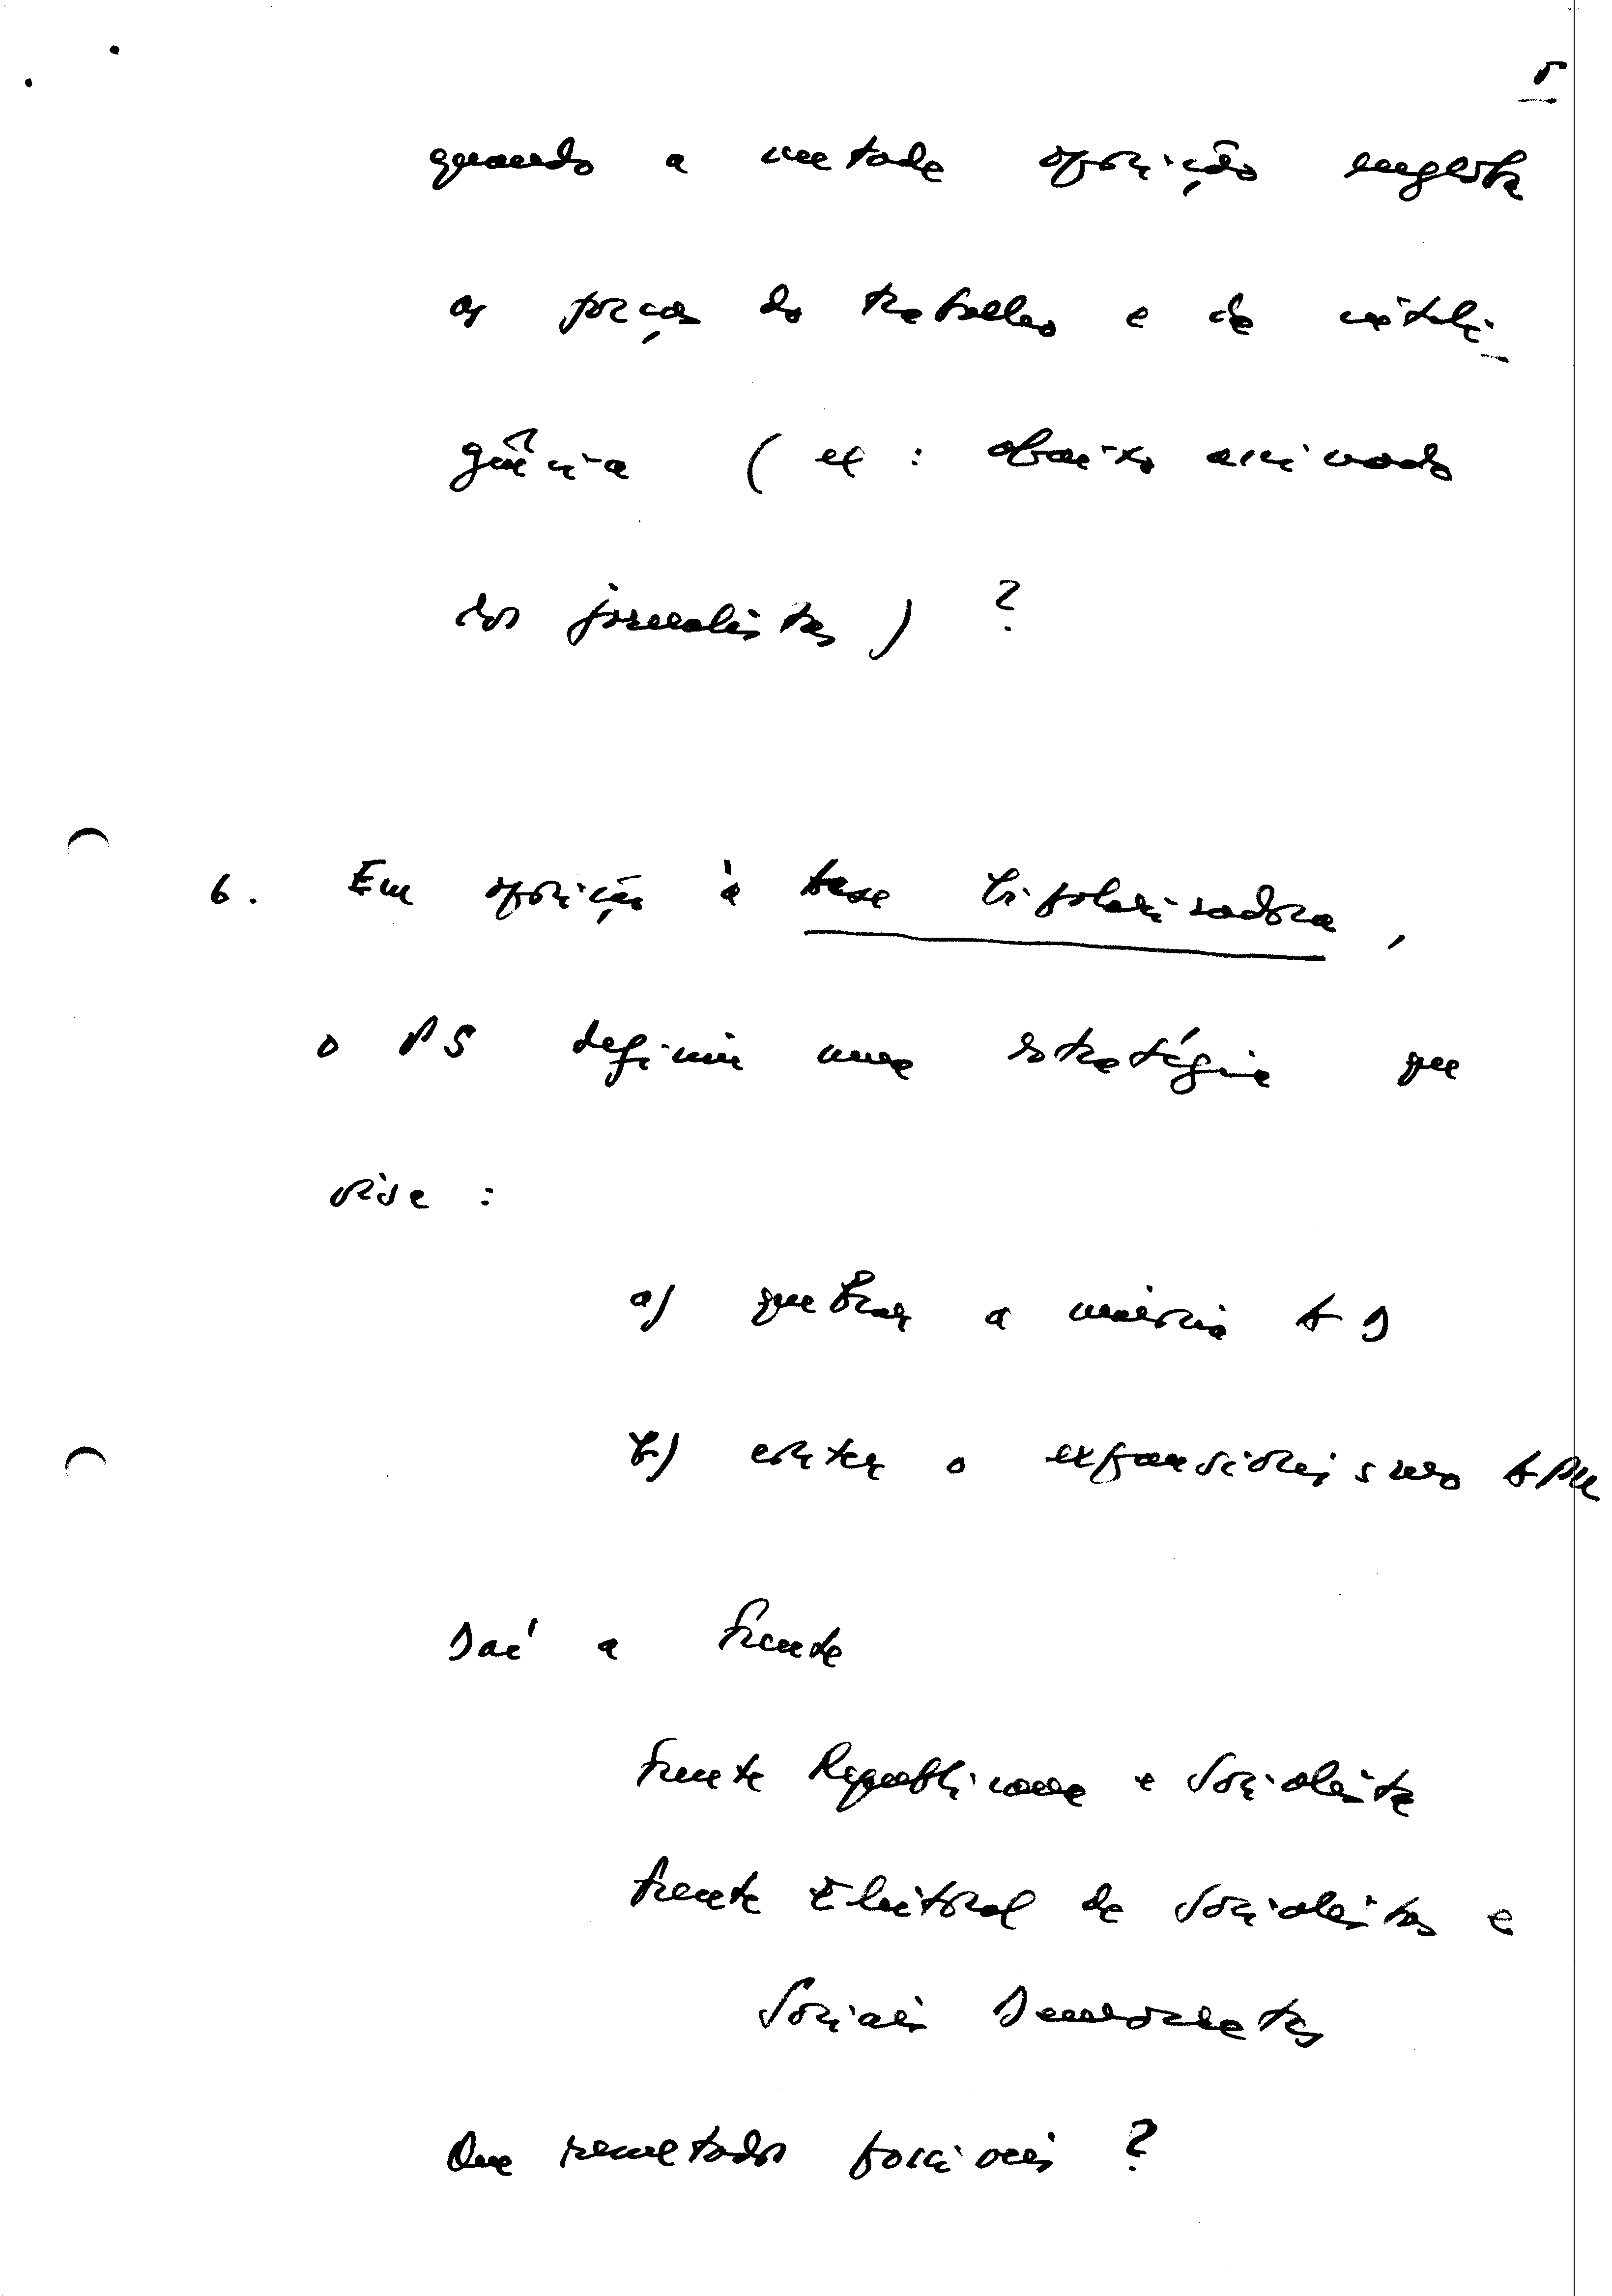 5
quando a metade oposição engloba
as forças do trabalho e da inteli-
gência ( ex : abaixo assinado
dos jornalistas ) ?
6. Em oposição à tese bipolarizadora,
o PS definiu uma estratégia que
visa :
a) quebrar a maioria AD
b) conter o expansionismo APU
Daí a Frente
Frente Republicana e Socialista
Frente Eleitoral de Socialistas e
Sociais Democratas
Que resultados possíveis ?